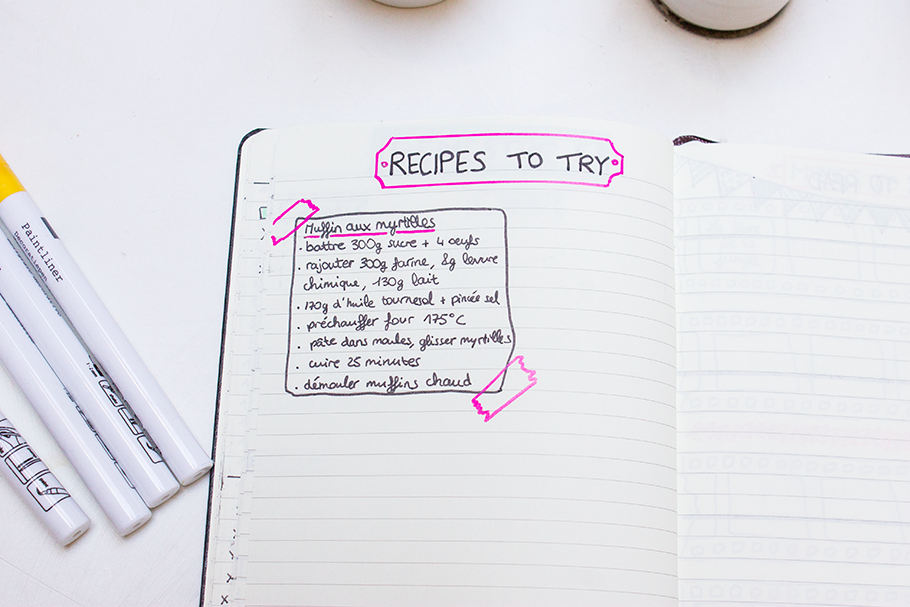 RECIPES TO TRY
Muffin aux myrtilles
· battre 300g sucre + 4 oeufs
· rajouter 300g farine, 8g levure
chimique, 130g lait
· 170g d'huile tournesol + pincée sel
· préchauffer four 175°C
· pâte dans moules, glisser myrtilles
· cuire 25 minutes
· démouler muffins chaud
Paintliner